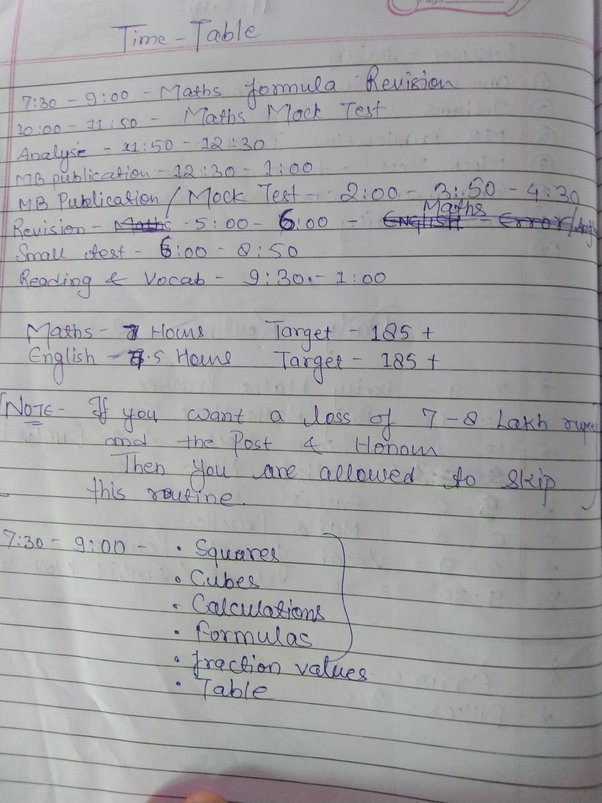 Time - Table
7:30 - 9:00 - Maths formula Revision
10:00 - 11:50 - Maths Mock Test
Analyse - 11:50 - 12:30
MB publication - 12:30 - 1:00
MB Publication / Mock Test - 2:00 - 3:50 - 4:30
Revision - Maths 5:00 - 6:00 - English - Error Maths
Small test - 6:00 - 8:50
Reading & Vocab - 9:30 - 1:00
Maths - 7 Hours Target - 185 +
English - 7.5 Hours Target - 185 +
[NOTE - If you want a loss of 7-8 Lakh rupees
and the Post & Honour
Then you are allowed to skip
this routine.]
7:30 - 9:00 - • Squares
• Cubes
• Calculations
• formulas
• fraction values
• Table